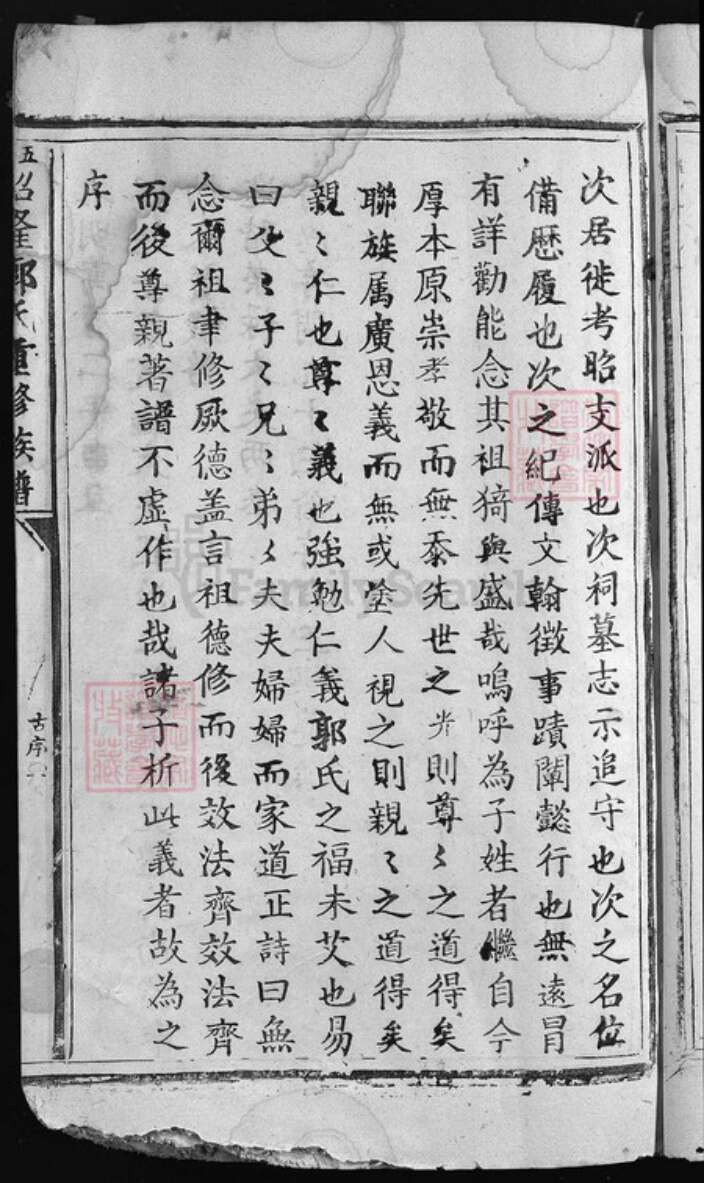 次居徙考昭支派也次祠墓志示追守也次之名位
備歷履也次之紀傳文翰徵事蹟闡懿行也無遠冒
有詳勸能念其祖猗與盛哉嗚呼為子姓者繼自今
厚本原崇孝敬而無忝先世之光則尊〻之道得矣
聯族属廣恩義而無或塗人視之則親〻之道得矣
親〻仁也尊〻義也強勉仁義郭氏之福未艾也易
曰父〻子〻兄〻弟〻夫夫婦婦而家道正詩曰無
念爾祖聿修厥德盖言祖德修而後效法齊效法齊
而後尊親著譜不虛作也哉諸子析此義者故為之
序
五
郭氏重修族譜
古序
FamilySearch